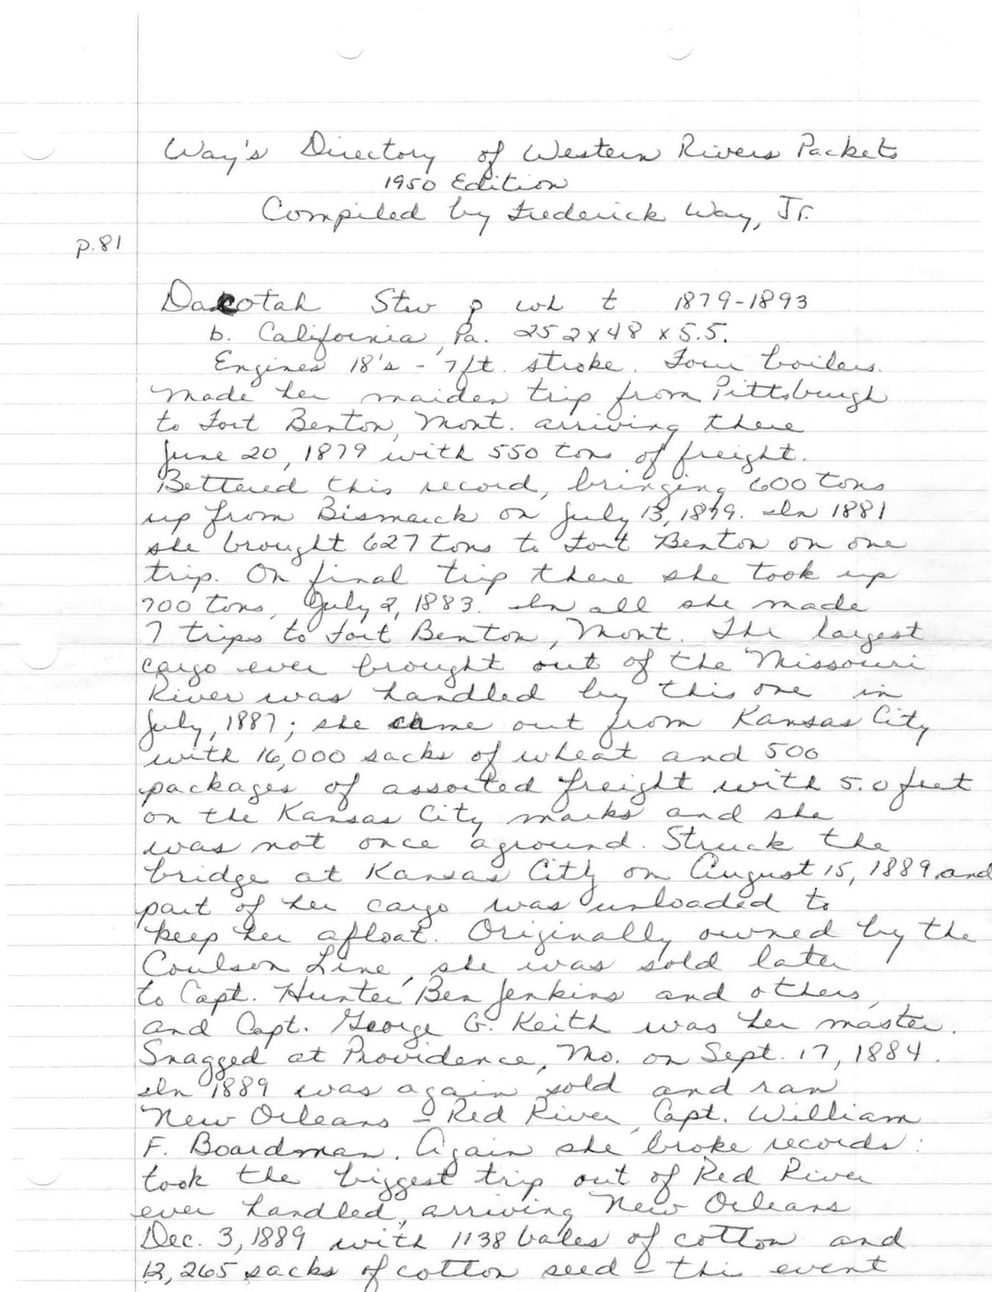 Way's Directory of Western Rivers Packets
1950 Edition
Compiled by Frederick Way, Jr.
p.81
Dacotah Stw p wh t 1879-1893
b. California, Pa. 252 x 48 x 5.5.
Engines 18's - 7ft. stroke. Four boilers.
Made her maiden trip from Pittsburgh
to Fort Benton, Mont. arriving there
June 20, 1879 with 550 tons of freight.
Bettered this record, bringing 600 tons
up from Bismarck on July 13, 1879. In 1881
she brought 627 tons to Fort Benton on one
trip. On final trip there she took up
700 tons, July 2, 1883. In all she made
7 trips to Fort Benton, Mont. The largest
cargo ever brought out of the Missouri
River was handled by this one in
July, 1887; she came out from Kansas City
with 16,000 sacks of wheat and 500
packages of assorted freight with 5.0 feet
on the Kansas City marks and she
was not once aground. Struck the
bridge at Kansas City on August 15, 1889 and
part of her cargo was unloaded to
keep her afloat. Originally owned by the
Coulson Line, she was sold later
to Capt. Hunter Ben Jenkins and others,
and Capt. George G. Keith was her master.
Snagged at Providence, Mo. on Sept. 17, 1884.
In 1889 was again sold and ran
New Orleans - Red River, Capt. William
F. Boardman. Again she broke records:
took the biggest trip out of Red River
ever handled, arriving New Orleans
Dec. 3, 1889 with 1138 bales of cotton and
12,265 sacks of cotton seed - this event